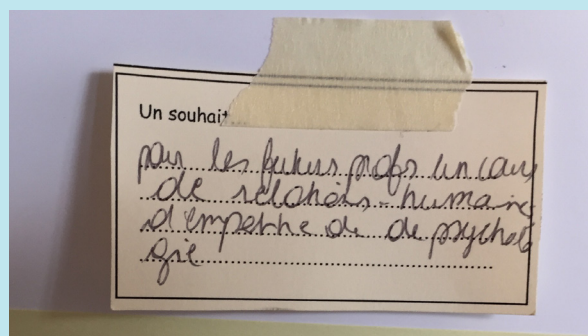 Un souhait
pour les futurs profs un cours
de relations-humaines
d'empathie de de psycholo
gie